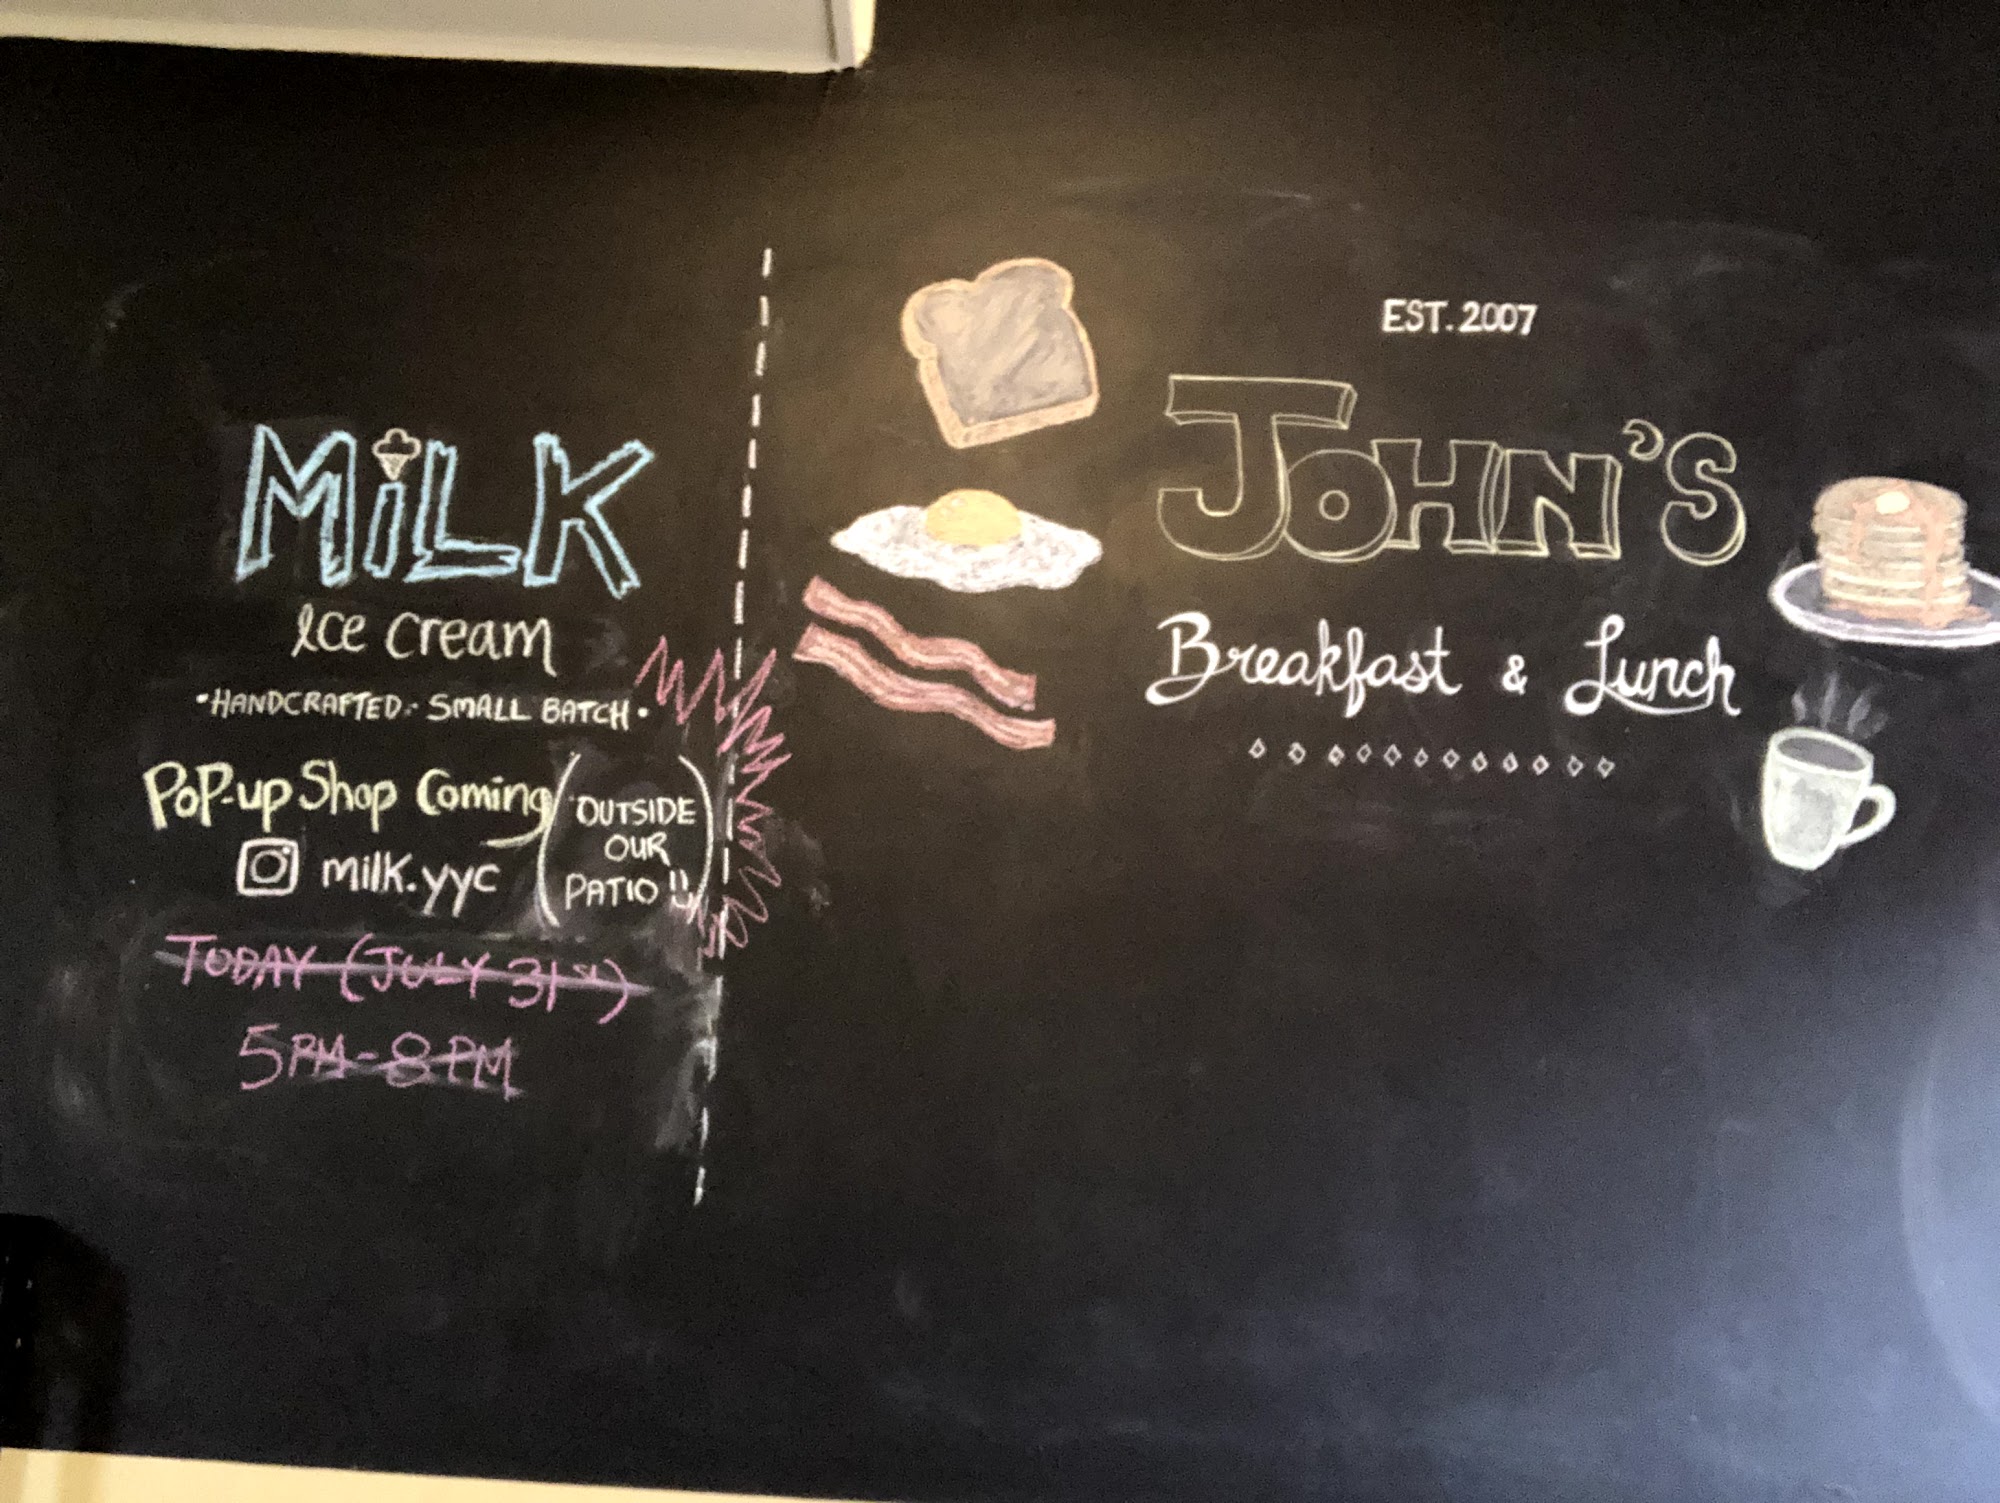 MiLK
Ice cream
•HANDCRAFTED• SMALL BATCH•
POP-up Shop Coming
(OUTSIDE
OUR
PATIO!!)
milk.yyc
TODAY (JULY 31st)
5PM-8PM
EST. 2007
JOHN'S
Breakfast & Lunch